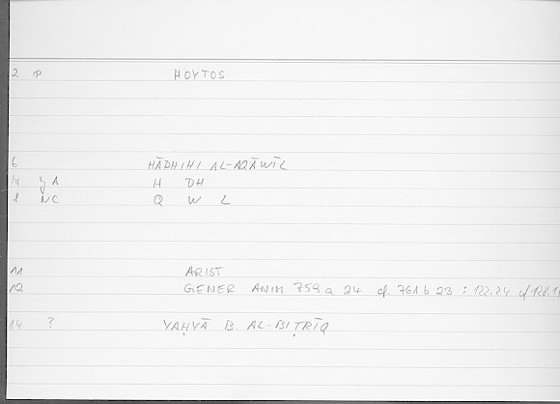 2 P HOYTOS
6 HĀDHIHI AL-AQĀWĪL
A H DH
8 NC Q W L
11 ARIST
12 GENER ANIM 759 a 24 cf. 761 b 23 : 122.24 cf
14 ? YAḤYĀ B. AL-BIṬRĪQ